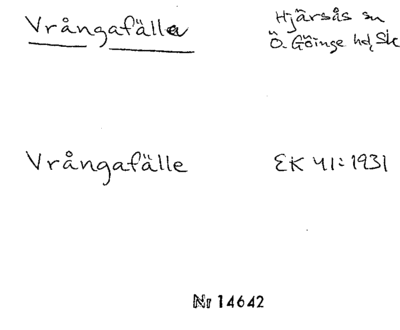 Vrångafälle
Hjärsås sn
Ö. Göinge hd, Sk
Vrångafälle
EK 41:1931
Nr 14642